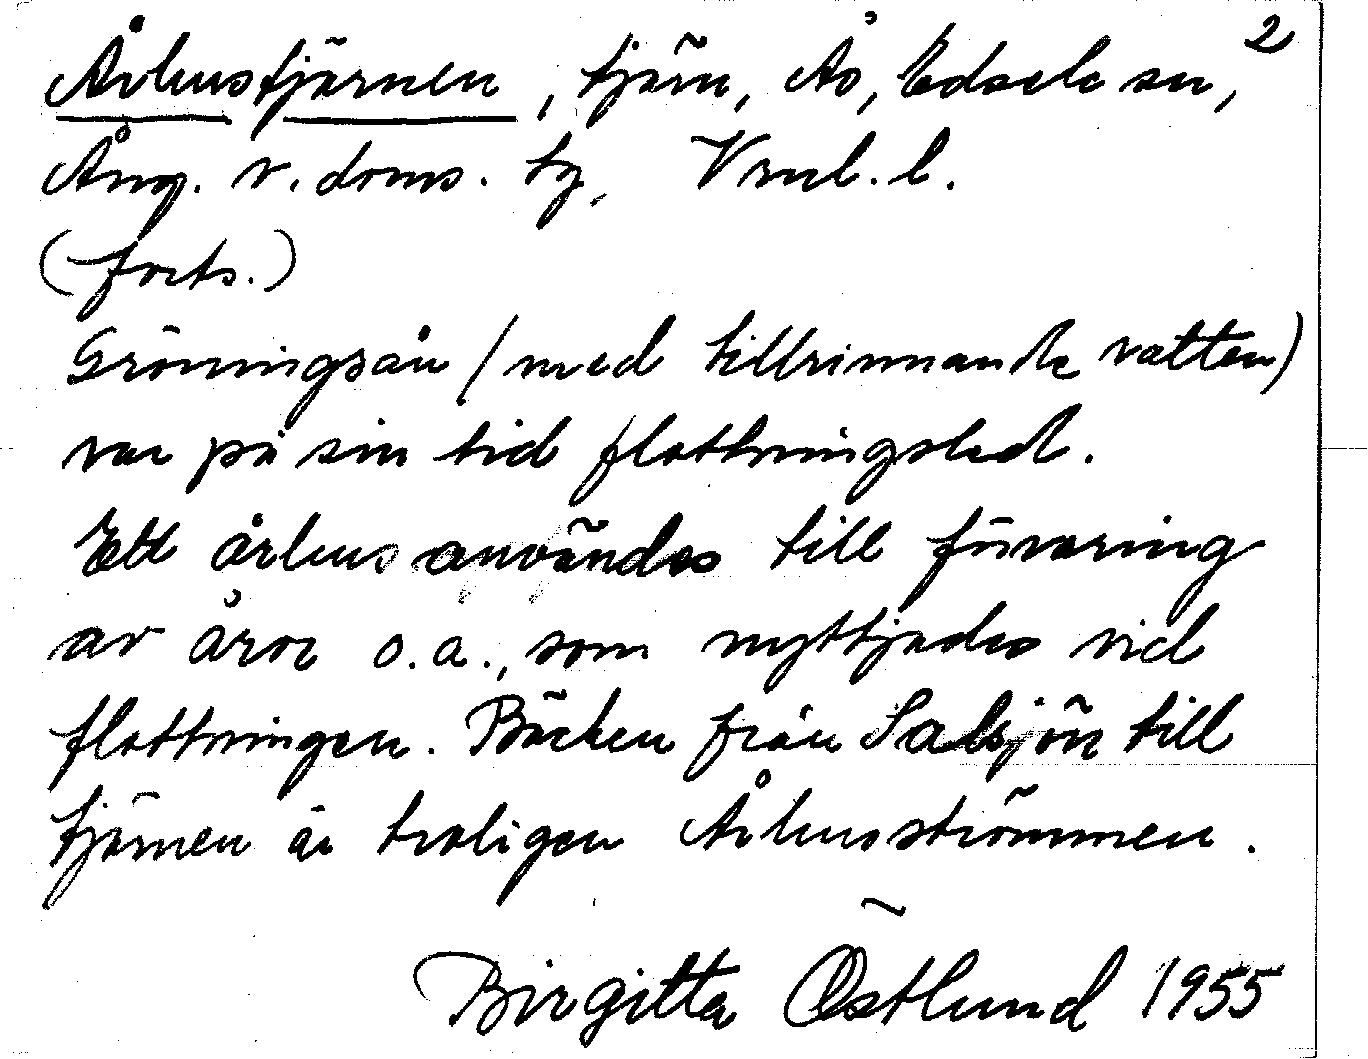 2
Århustjärnen, tjärn, Ås, Edsele sn,
Ång. v. doms. tg, Vrnl. l.
(forts.)
Gröningsån (med tillrinnande vatten)
var på sin tid flottningsled.
Ett århus användes till förvaring
av åror o.a., som nyttjades vid
flottningen. Bäcken från Salsjön till
tjärnen är troligen Århusströmmen.
Birgitta Östlund 1955